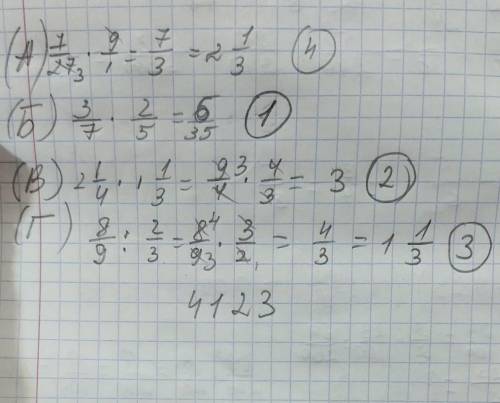 (А) 7/27 3 · 9/1 = 7/3 = 2 1/3 (4)
(Б) 3/7 · 2/5 = 6/35 (1)
(В) 2 1/4 · 1 1/3 = 9 3/4 · 4/3 = 3 (2)
(Г) 8/9 : 2/3 = 8 4/9 3 · 3/2 1 = 4/3 = 1 1/3 (3)
4123